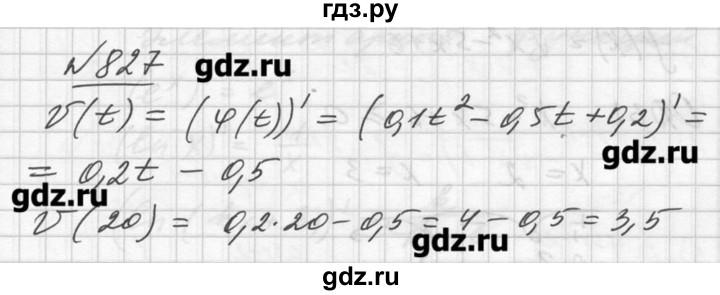 гдз.ру
№827
gdz.ru
v(t) = (φ(t))' = (0,1t² - 0,5t + 0,2)' =
gdz.ru
= 0,2t - 0,5
gdz.ru
v(20) = 0,2·20 - 0,5 = 4 - 0,5 = 3,5
gdz.ru
gdz.ru